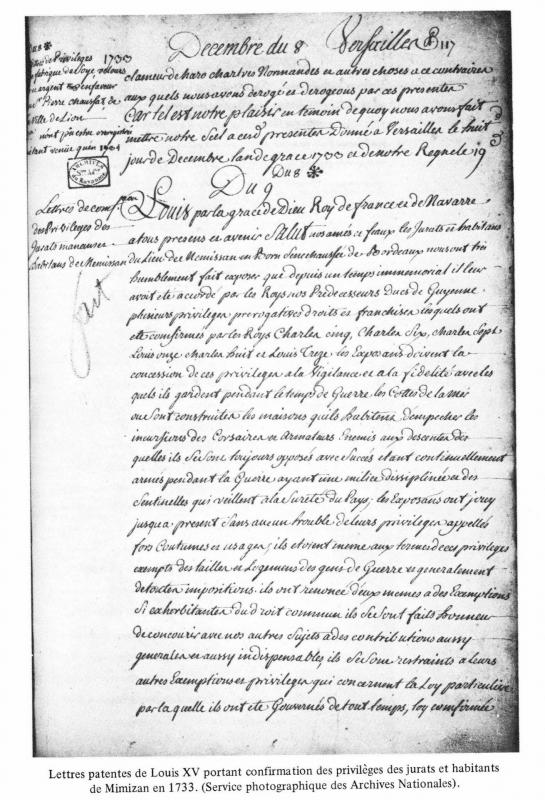 Decembre du 8 Versailles 117
Du 8
de Privileges 1733
fabrique de Soye, velours
en argent en faveur
Pierre chaussat de
ville de Lion
clameur de haro chartres Normandes et autres choses a ce contraires
aux quels nous avons derogé et derogeons par ces presentes
Car tel est notre plaisir en temoin de quoy nous avons fait
mettre notre Scel a cesd. presentes Donné a Versailles le huit
jour de Decembre l'an de grace 1733 et de notre Regne le 19
Du 8
ARCHIVES
Du 9
Lettres de conf.on
des Privileges des
Jurats manans et
habitans de Memissan
fait
Louis par la grace de Dieu Roy de france et de Navarre
a tous presens et avenir Salut nos amés et feaux les Jurats et habitans
du Lieu de Memissan en Born Senechaussée de Bordeaux nous ont trés
humblement fait exposer que depuis un temps immemorial il leur
avoit eté accordé par les Roys nos Predecesseurs Ducs de Guyenne
plusieurs privileges prerogatives droits et franchises lesquels ont
eté confirmés par les Roys Charles cinq, Charles Six, Charles Sept
Louis onze Charles huit et Louis Treze les Exposans doivent la
concession de ces privileges a la Vigilance et a la fidelité avec les
quels ils gardent pendant le temps de Guerre les Cottes de la mer
ou Sont construites les maisons quils habitent d'empecher les
incursions des Corsaires et Armateurs Enemis aux descentes des
quelles ils se sont toujours opposés avec Succés etant continuellement
armés pendant la Guerre ayant une milice dissiplinée et des
Sentinelles qui veillent a la Sureté du Pays; les Exposans ont jouy
jusqu'a present Sans aucun trouble de leurs privileges appellés
fors Coutumes et usages; ils etoient meme aux termes de ces privileges
exempts des tailles et Logemens des gens de Guerre et generalement
de toutes impositions. ils ont renoncé d'eux memes a des Exemptions
Si exhorbitantes du droit commun ils se sont faits honneur
de concourir avec nos autres Sujets a des contributions aussy
generales et aussy indispensables, ils se sont restraints a leurs
autres Exemptions et privileges qui concernent la Loy particuliere
par la quelle ils ont eté Gouvernés de tout temps, loy confirmée
Lettres patentes de Louis XV portant confirmation des privilèges des jurats et habitants
de Mimizan en 1733. (Service photographique des Archives Nationales).